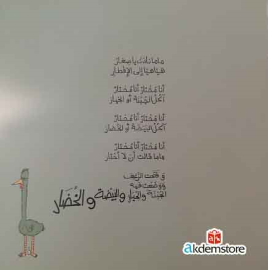 ماما نادت يا صغار
هيا هيا إلى الإفطار
أنا محتار أنا محتار
آكل البيضة أو الخيار
أنا محتار أنا محتار
آكل البيضة أو الخضار
أنا محتار أنا محتار
ماما قالت أن لا أحتار
و فتحت الرغيف
و وضعت فيه
الجبنة والخيار والبيضة و الخضار
akdemstore